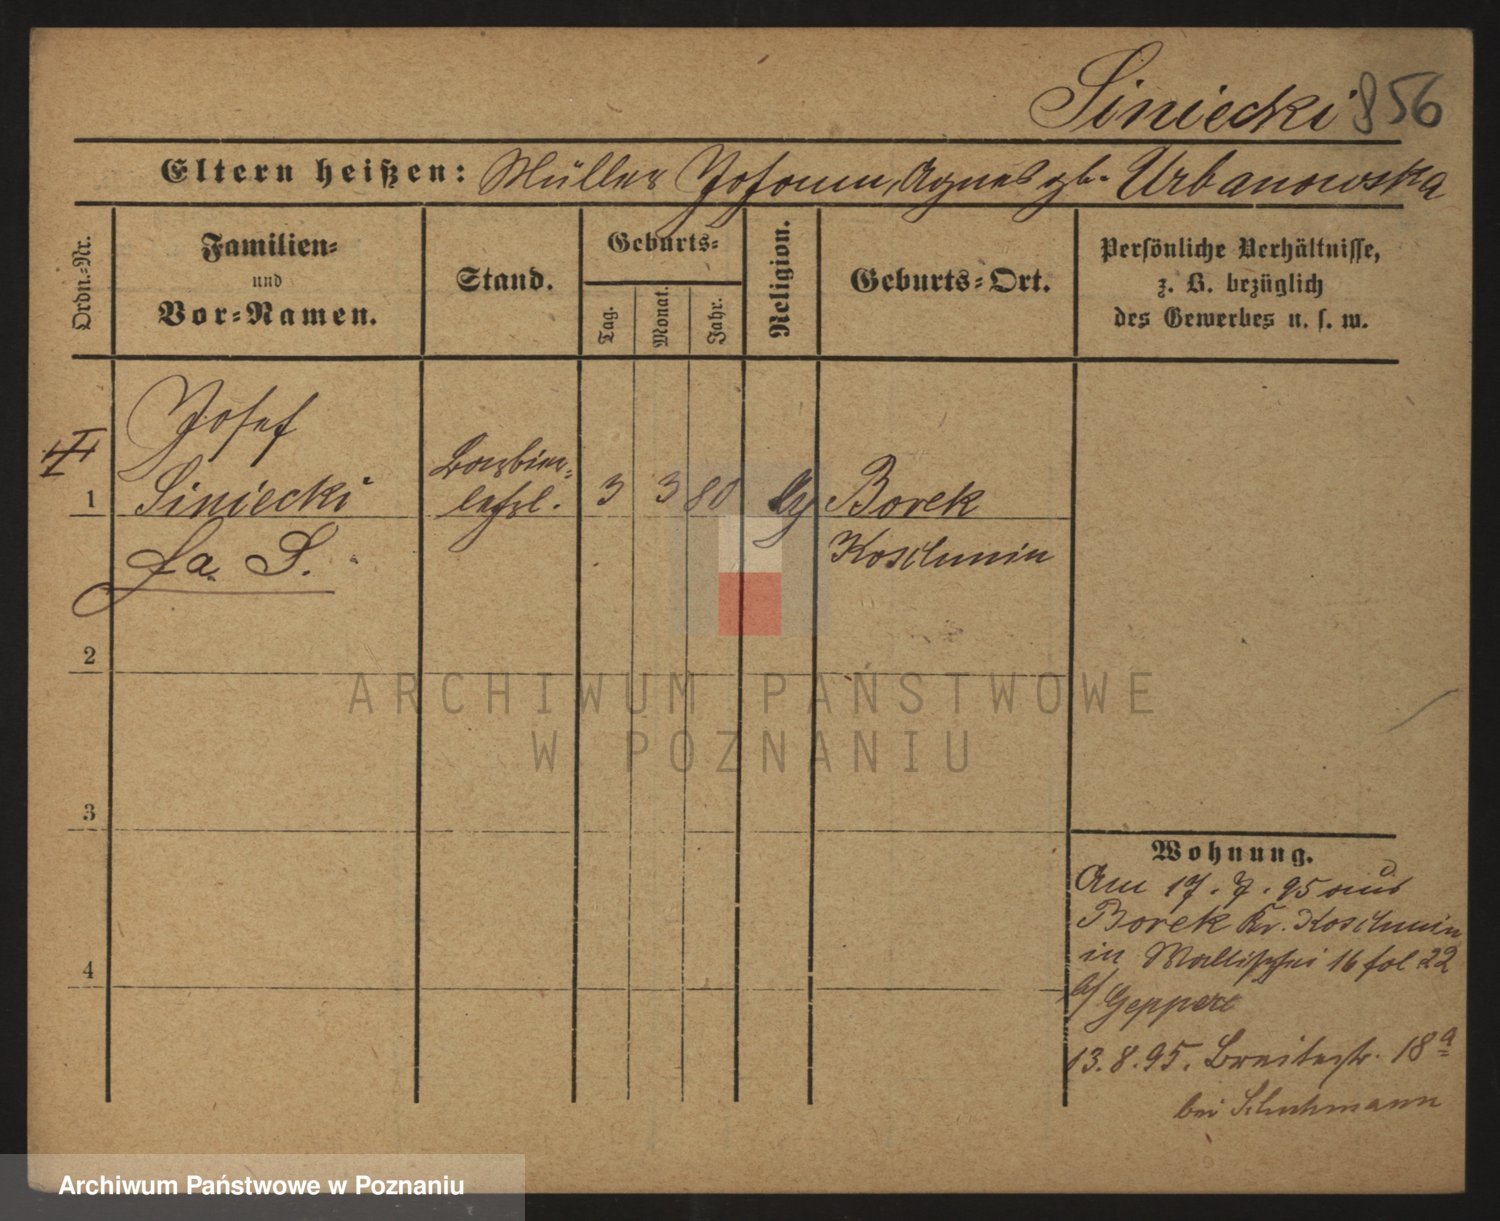 Siniecki 856
Eltern heißen: Müller Johann, Agnes gb. Urbanowska
Ordn.-Nr.
Familien-
und
Vor-Namen.
Stand.
Geburts-
Tag.
Monat.
Jahr.
Religion.
Geburts-Ort.
Persönliche Verhältnisse,
z. B. bezüglich
des Gewerbes u. s. w.
Josef
1 Siniecki
Barbier-
lehrl.
3 3 80
Borek
Koschmin
fa. S.
2
3
4
Wohnung.
Am 17. 7. 95 aus
Borek Kr. Koschmin
in Wallischei 16 fol 22
b/ Geppert
13. 8. 95. Breitestr. 18a
bei Schuhmann
ARCHIWUM PAŃSTWOWE
W POZNANIU
Archiwum Państwowe w Poznaniu